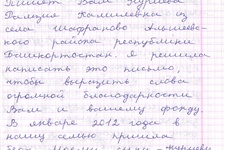 Пишет Вам Куриева
Галия Камилевна из
села Шафраново Альшеевс-
кого района республики
Башкортостан. Я решила
написать это письмо,
чтобы выразить слова
огромной благодарности
Вам и вашему фонду.
В январе 2012 года в
нашу семью пришла